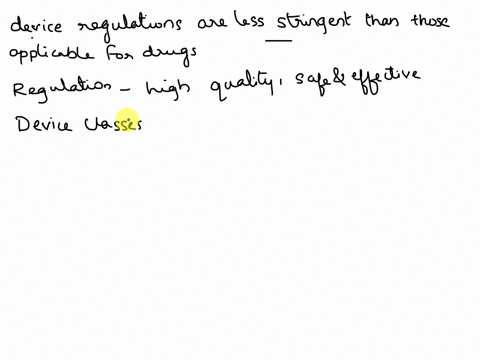 device regulations are less stringent than those
applicable for drugs
Regulation - high quality, safe & effective
Device classes